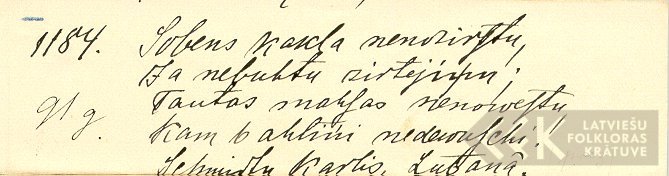 1184. Sobens kakla nenozirstu,
Ja nebuhtu zirtejiņu;
91g. Tautas mahsas nenowestu,
Kam bahliņi nedewuschi!
Schmidtu Karlis, Lubanā.
LATVIEŠU
FOLKLORAS
KRĀTUVE